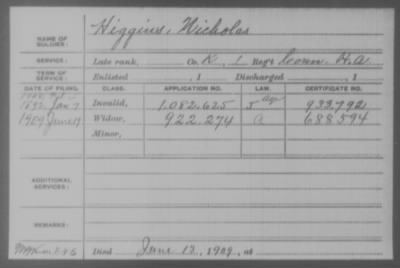 NAME OF SOLDIER: Higgins, Nicholas
SERVICE: Late rank, Co. K, 1 Reg't Conn. H.A.
TERM OF SERVICE: Enlisted , 1 Discharged , 1
DATE OF FILING. CLASS. APPLICATION NO. LAW. CERTIFICATE NO.
1892 Jan 7 Invalid, 1.082.625 933.792
1909 June 19 Widow, 922.274 a 688594
Minor,
ADDITIONAL SERVICES:
REMARKS:
Died June 13, 1909, at